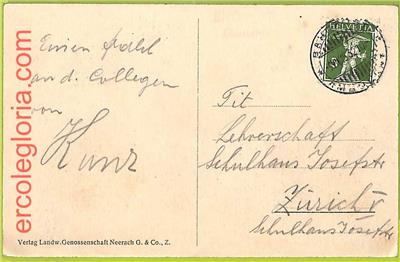 Einen
and. Collegen
von
Kunz
Tit
Lehrerschaft
Schulhaus Josefstr
Zürich V
Schulhaus Josefstr
HELVETIA
Verlag Landw. Genossenschaft Neerach G. & Co., Z.
ercolegloria.com